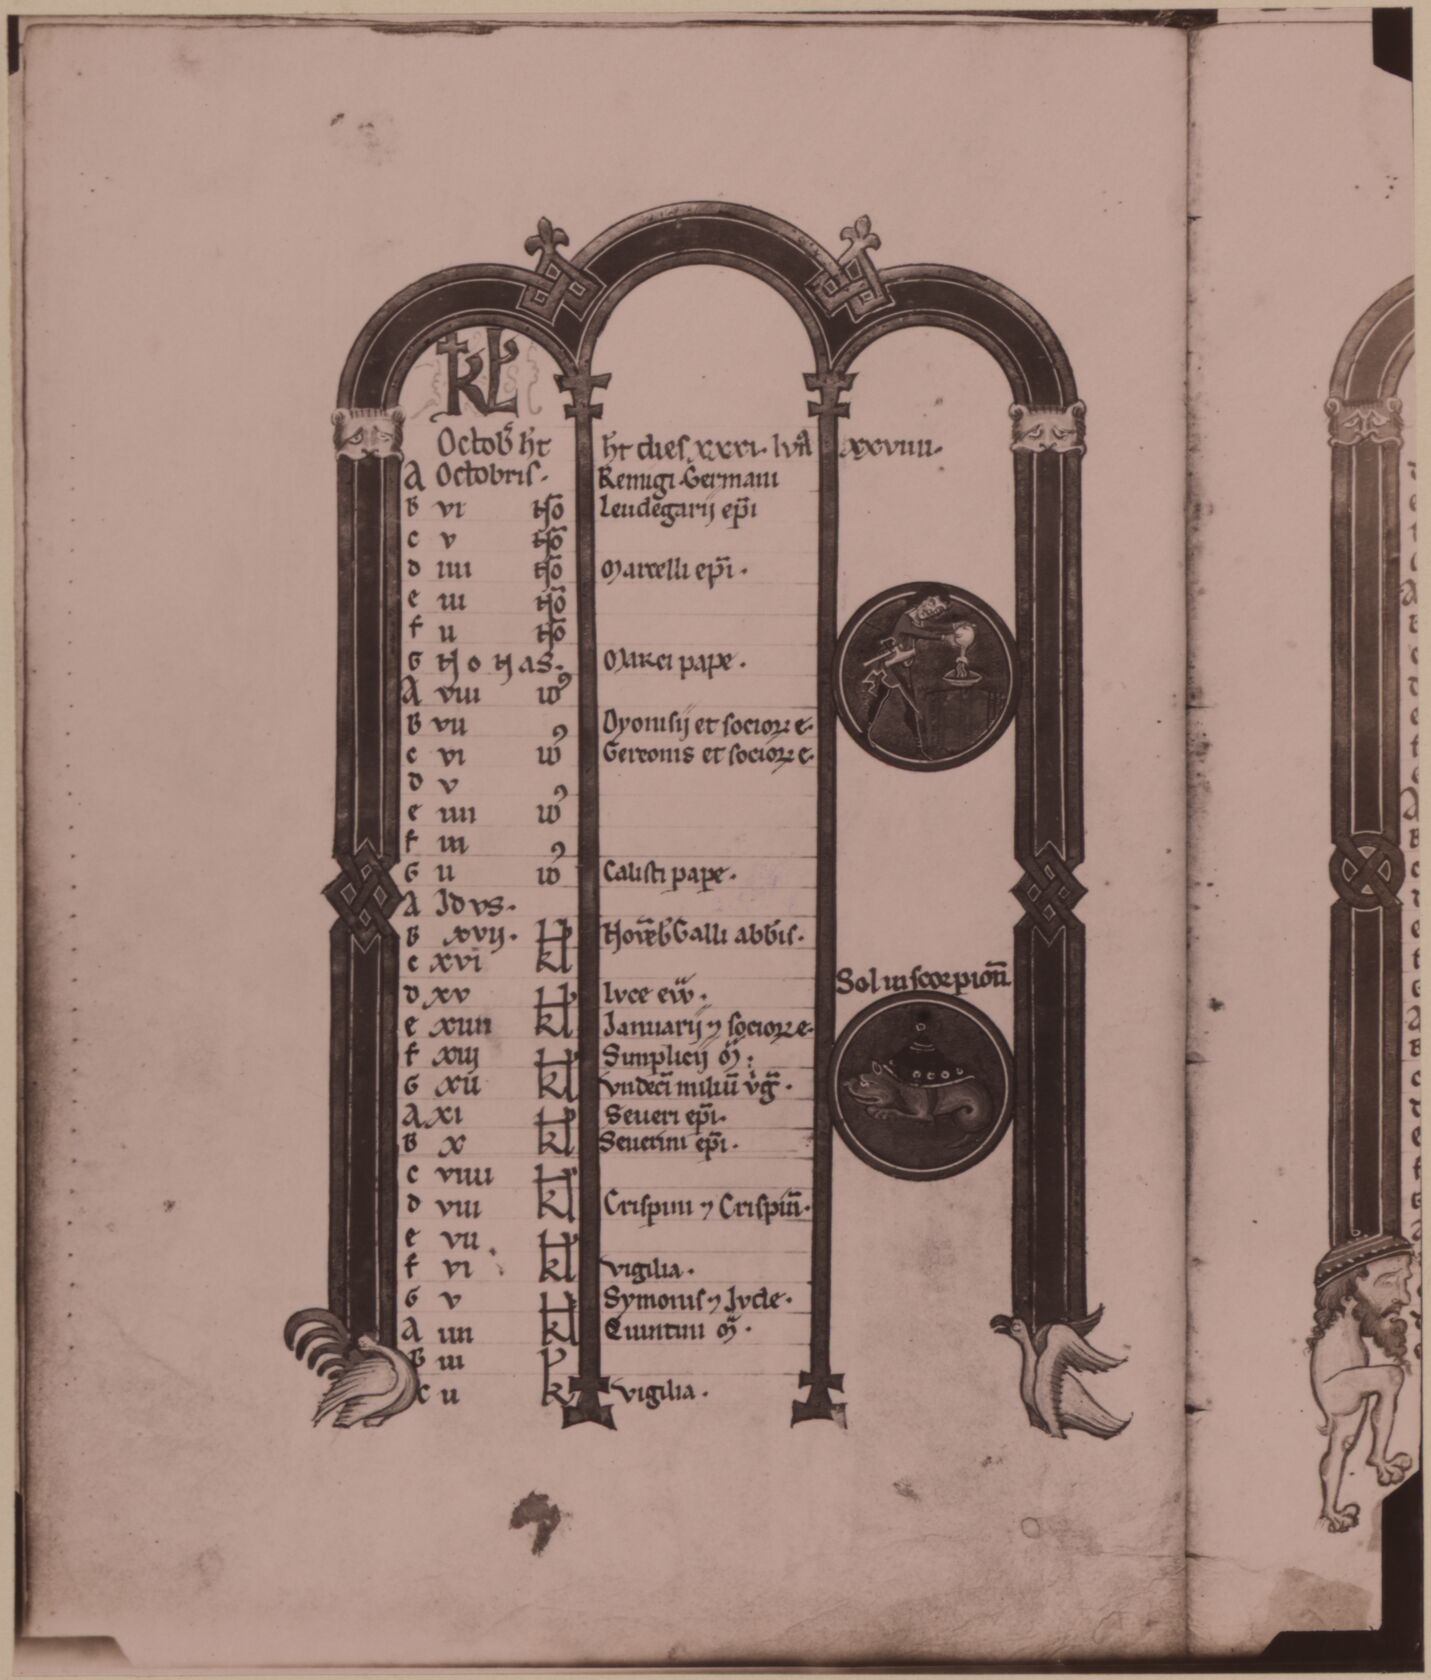 KL
Octob̄ ht ht dies xxxi. lun̄ xxviiii.
A Octobris. Remigi. Germani
B vi No Leudegarij ep̄i
c v No
d iiii No Marcelli ep̄i.
e iii No
f ii No
G Nonas. Marci pape.
A viii id9
B vii Dyonisij et socioꝝ e.
c vi id9 Gereonis et socioꝝ e.
d v
e iiii id9
f iii
G ii id9 Calisti pape.
A Idus.
B xvij. kl Novēb Galli abb̄is.
c xvi kl
d xv kl luce ew̄.
e xiiii kl Januarij ⁊ socioꝝ e.
f xiij kl Simplicij m̄.
G xii kl Undeci milliū v̄g.
A xi kl Severi ep̄i.
B x kl Severini ep̄i.
c viiii kl
d viii kl Crispini ⁊ Crispin̄.
e vii kl
f vi kl vigilia.
G v kl Symonis ⁊ Jude.
A iiii kl Quintini m̄.
B iii k
c ii k vigilia.
Sol in scorpion̄